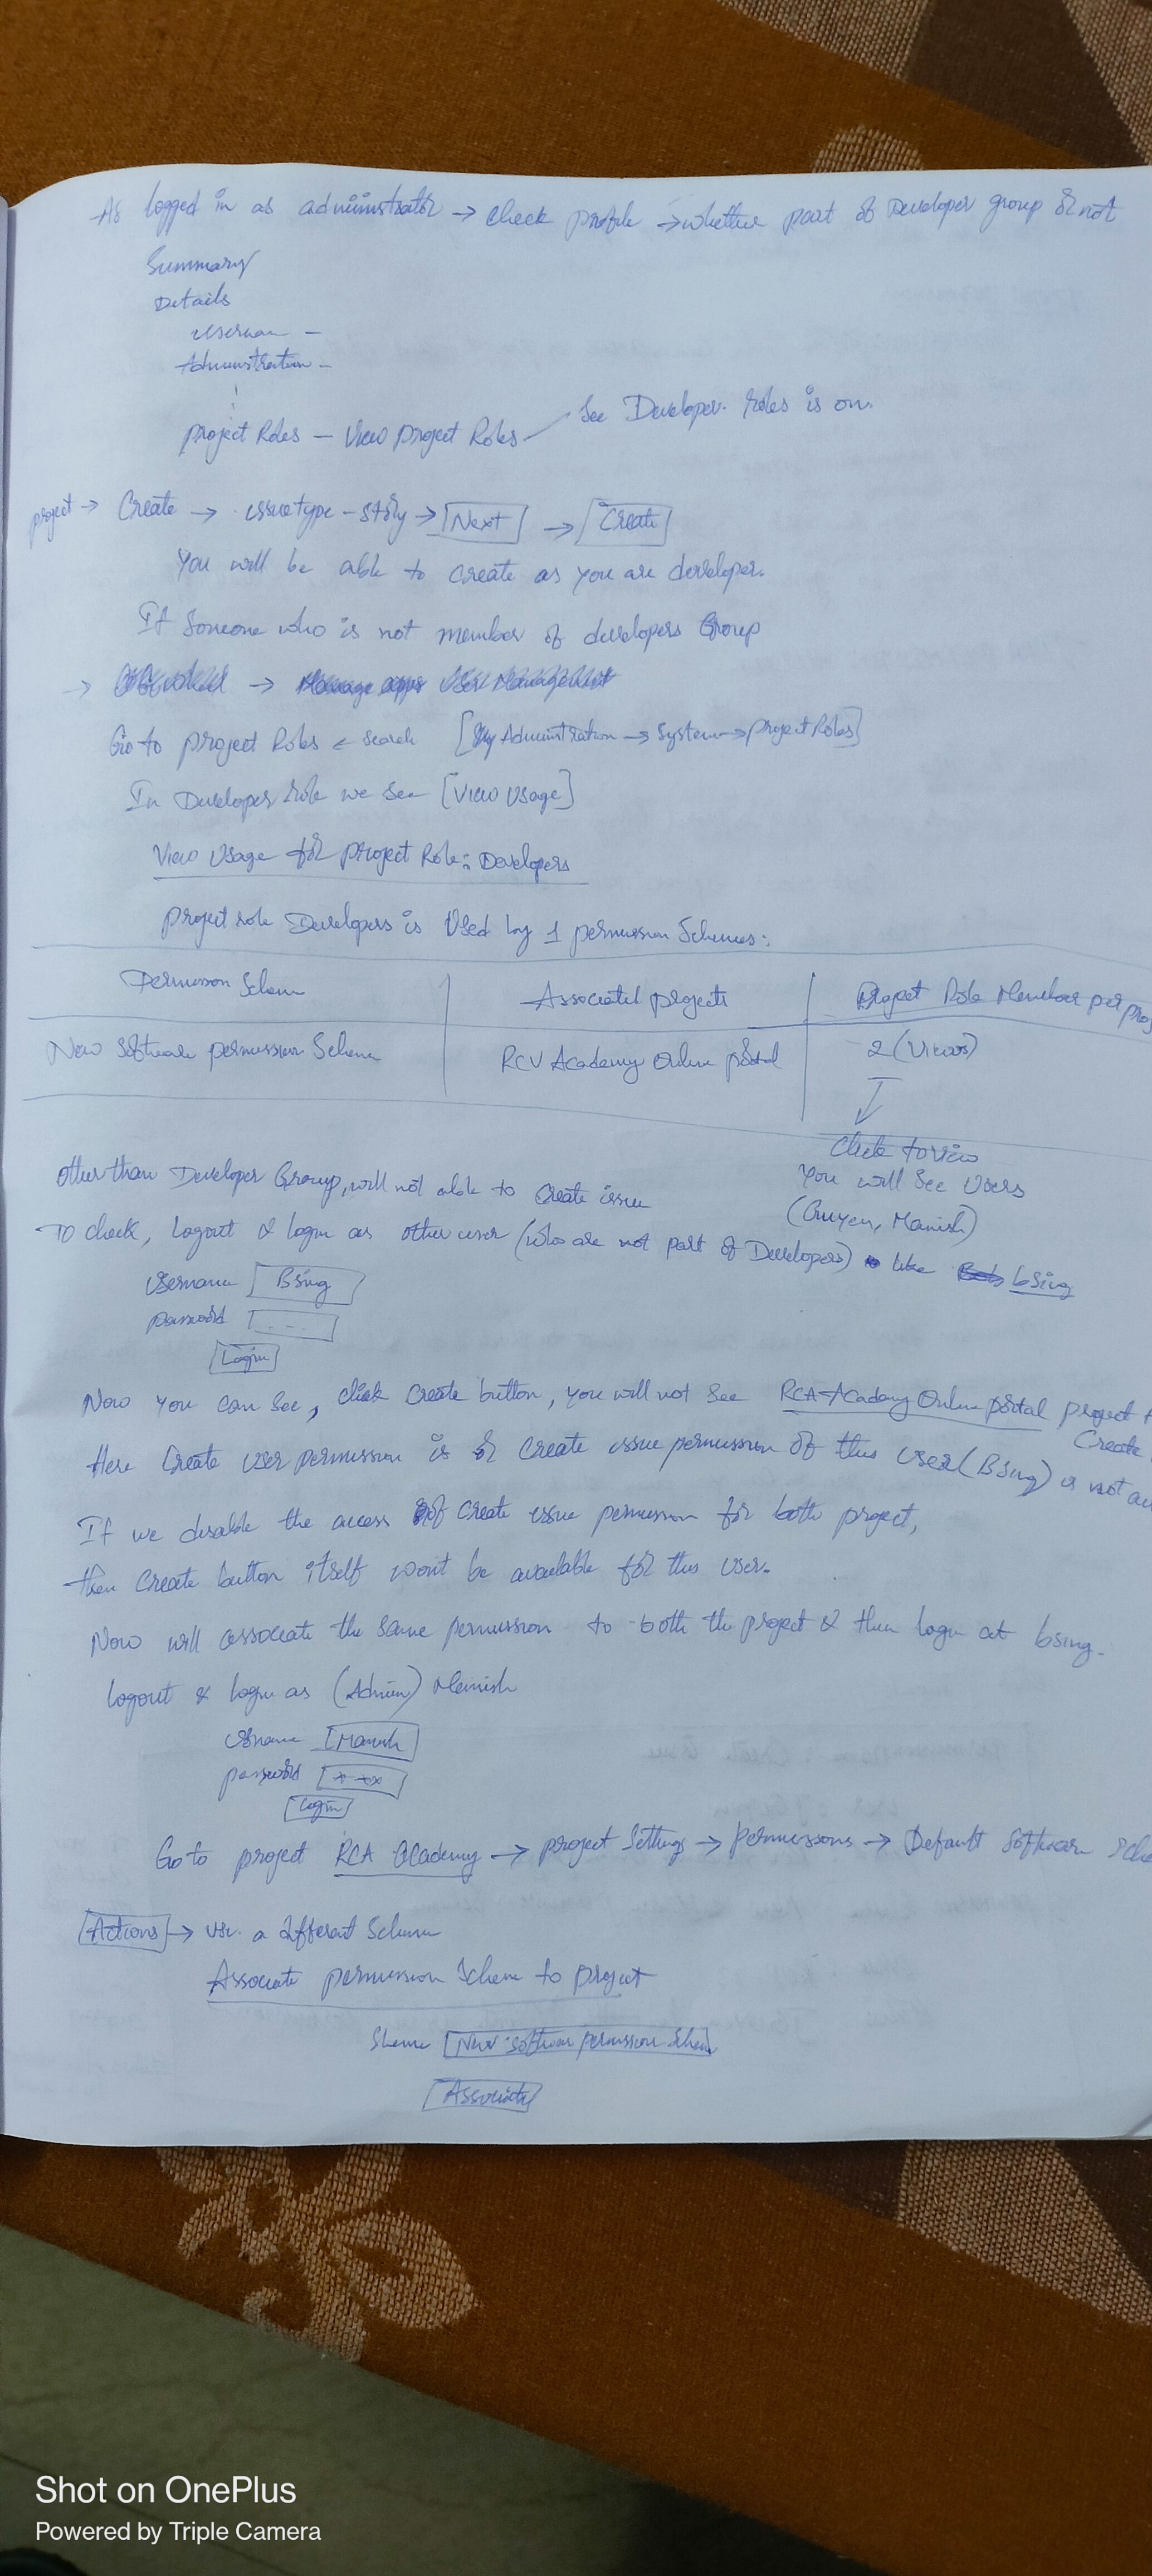 As logged in as administrator → check profile → whether part of Developer group or not
Summary
Details
Usernam –
Administration –
project Roles – View project Roles
See Developer. Roles is on.
project → Create → issuetype – story → [Next] → [Create]
You will be able to create as you are developer.
If Someone who is not member of developers Group
→ → Manage apps User Management
Go to project Roles ← search [Administration → System → project Roles]
In Developer role we see [View Usage]
View Usage for project Role: Developers
project role Developers is Used by 1 permission Schemes:
Permission Schem
Associated projects
Project Role Members per pro
New Software permission Schem
RCV Academy Online portal
2 (View)
Click to view
You will see Users
(Manish)
Other than Developer Group, will not able to Create issue
To check, Logout & login as other user (who are not part of Developers) like bsing
Username [Bsing]
password [...]
[Login]
Now you can see, click Create button, you will not see RCA Academy Online portal project
Create
Here Create user permission is or create issue permission of this user (Bsing) is not
If we disable the access of create issue permission for both project,
then Create button itself won't be available for this user.
Now will associate the same permission to both the project & then login at bsing.
Logout & login as (Admin) Manish
[Manish]
password [***]
[Login]
Go to project RCA Academy → project Settings → permissions → Default Software
[Actions] → use a different Scheme
Associate permission Scheme to project
Sheme [New Software permission Schem]
[Associate]
Shot on OnePlus
Powered by Triple Camera